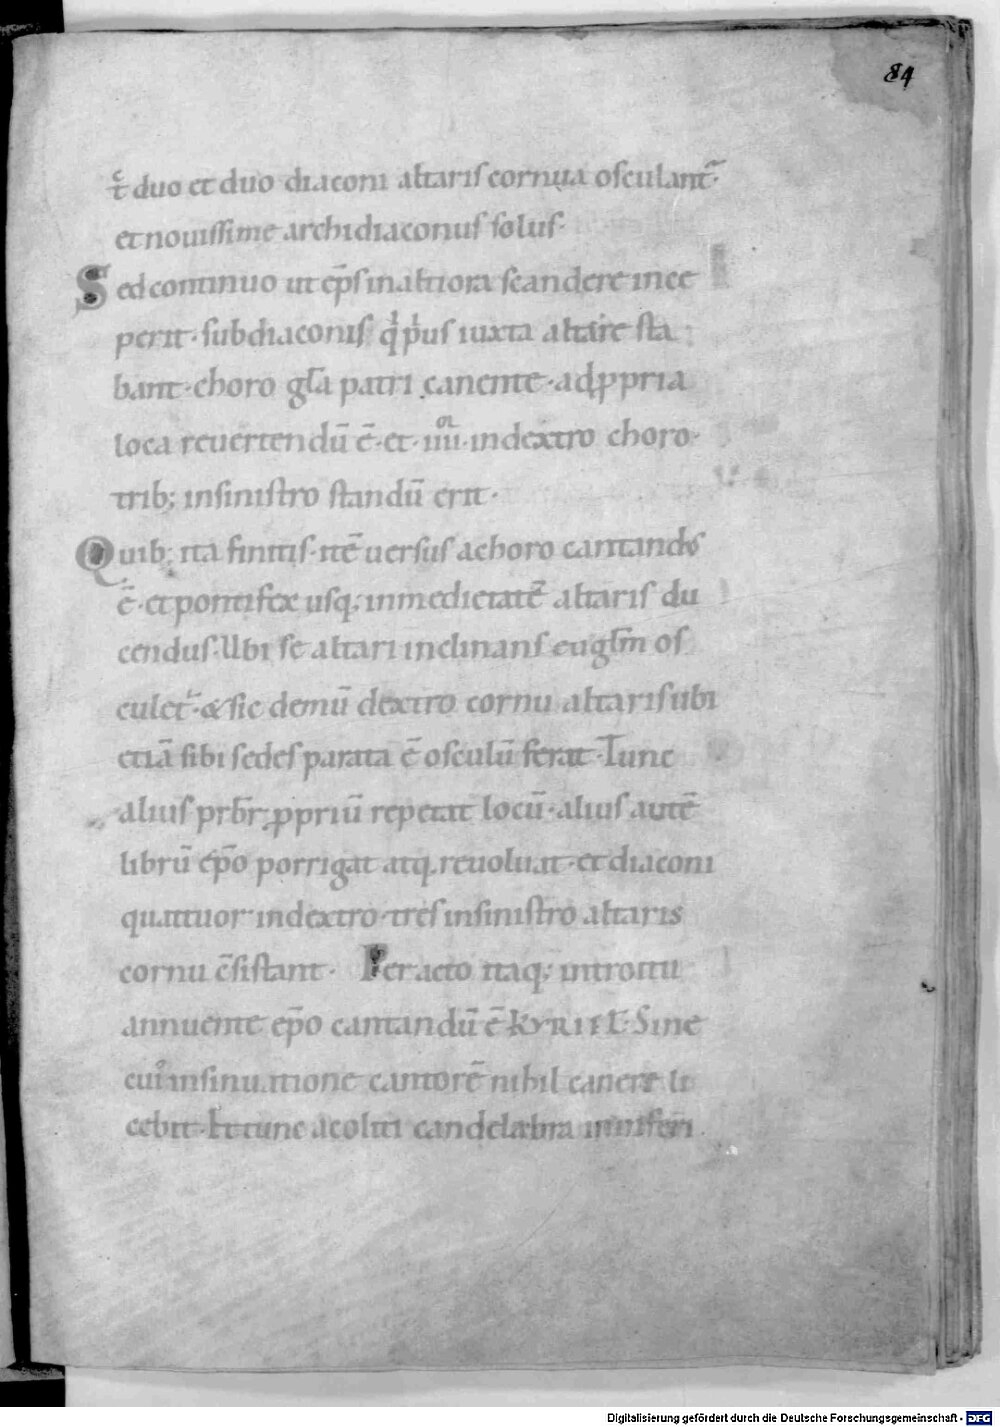 84
t̄c duo et duo diaconi altaris cornua osculant᷑·
et nouissime archidiaconus solus·
Sed continuo ut ep̄s in altiora scandere ince
perit· subdiaconis q̇ ṗus iuxta altare sta
bant· choro gl̄a patri canente· ad ꝓpria
loca reuertendū ē· et· iiii·or in dextro choro·
trib; in sinistro standū erit·
Quib; ita finitis· itē uersus a choro cantandus
ē· et pontifex usq; in medietatē altaris du
cendus· Ubi se altari inclinans eugl̄m os
culet᷑· & sic demū dextro cornu altaris ubi
etiā sibi sedes parata ē osculū ferat· Tunc
alius prb̄r ꝓpriū repetat locū· alius autē
librū ep̄o porrigat atq; reuoluat· et diaconi
quattuor in dextro· tres in sinistro altaris
cornu c̄sistant· Peracto itaq; introitu
annuente ep̄o cantandū ē KYRIE EL· Sine
cui᷒ insinuatione cantorē nihil canere li
cebit· Et tunc acoliti candelabra in inferi
Digitalisierung gefördert durch die Deutsche Forschungsgemeinschaft - DFG